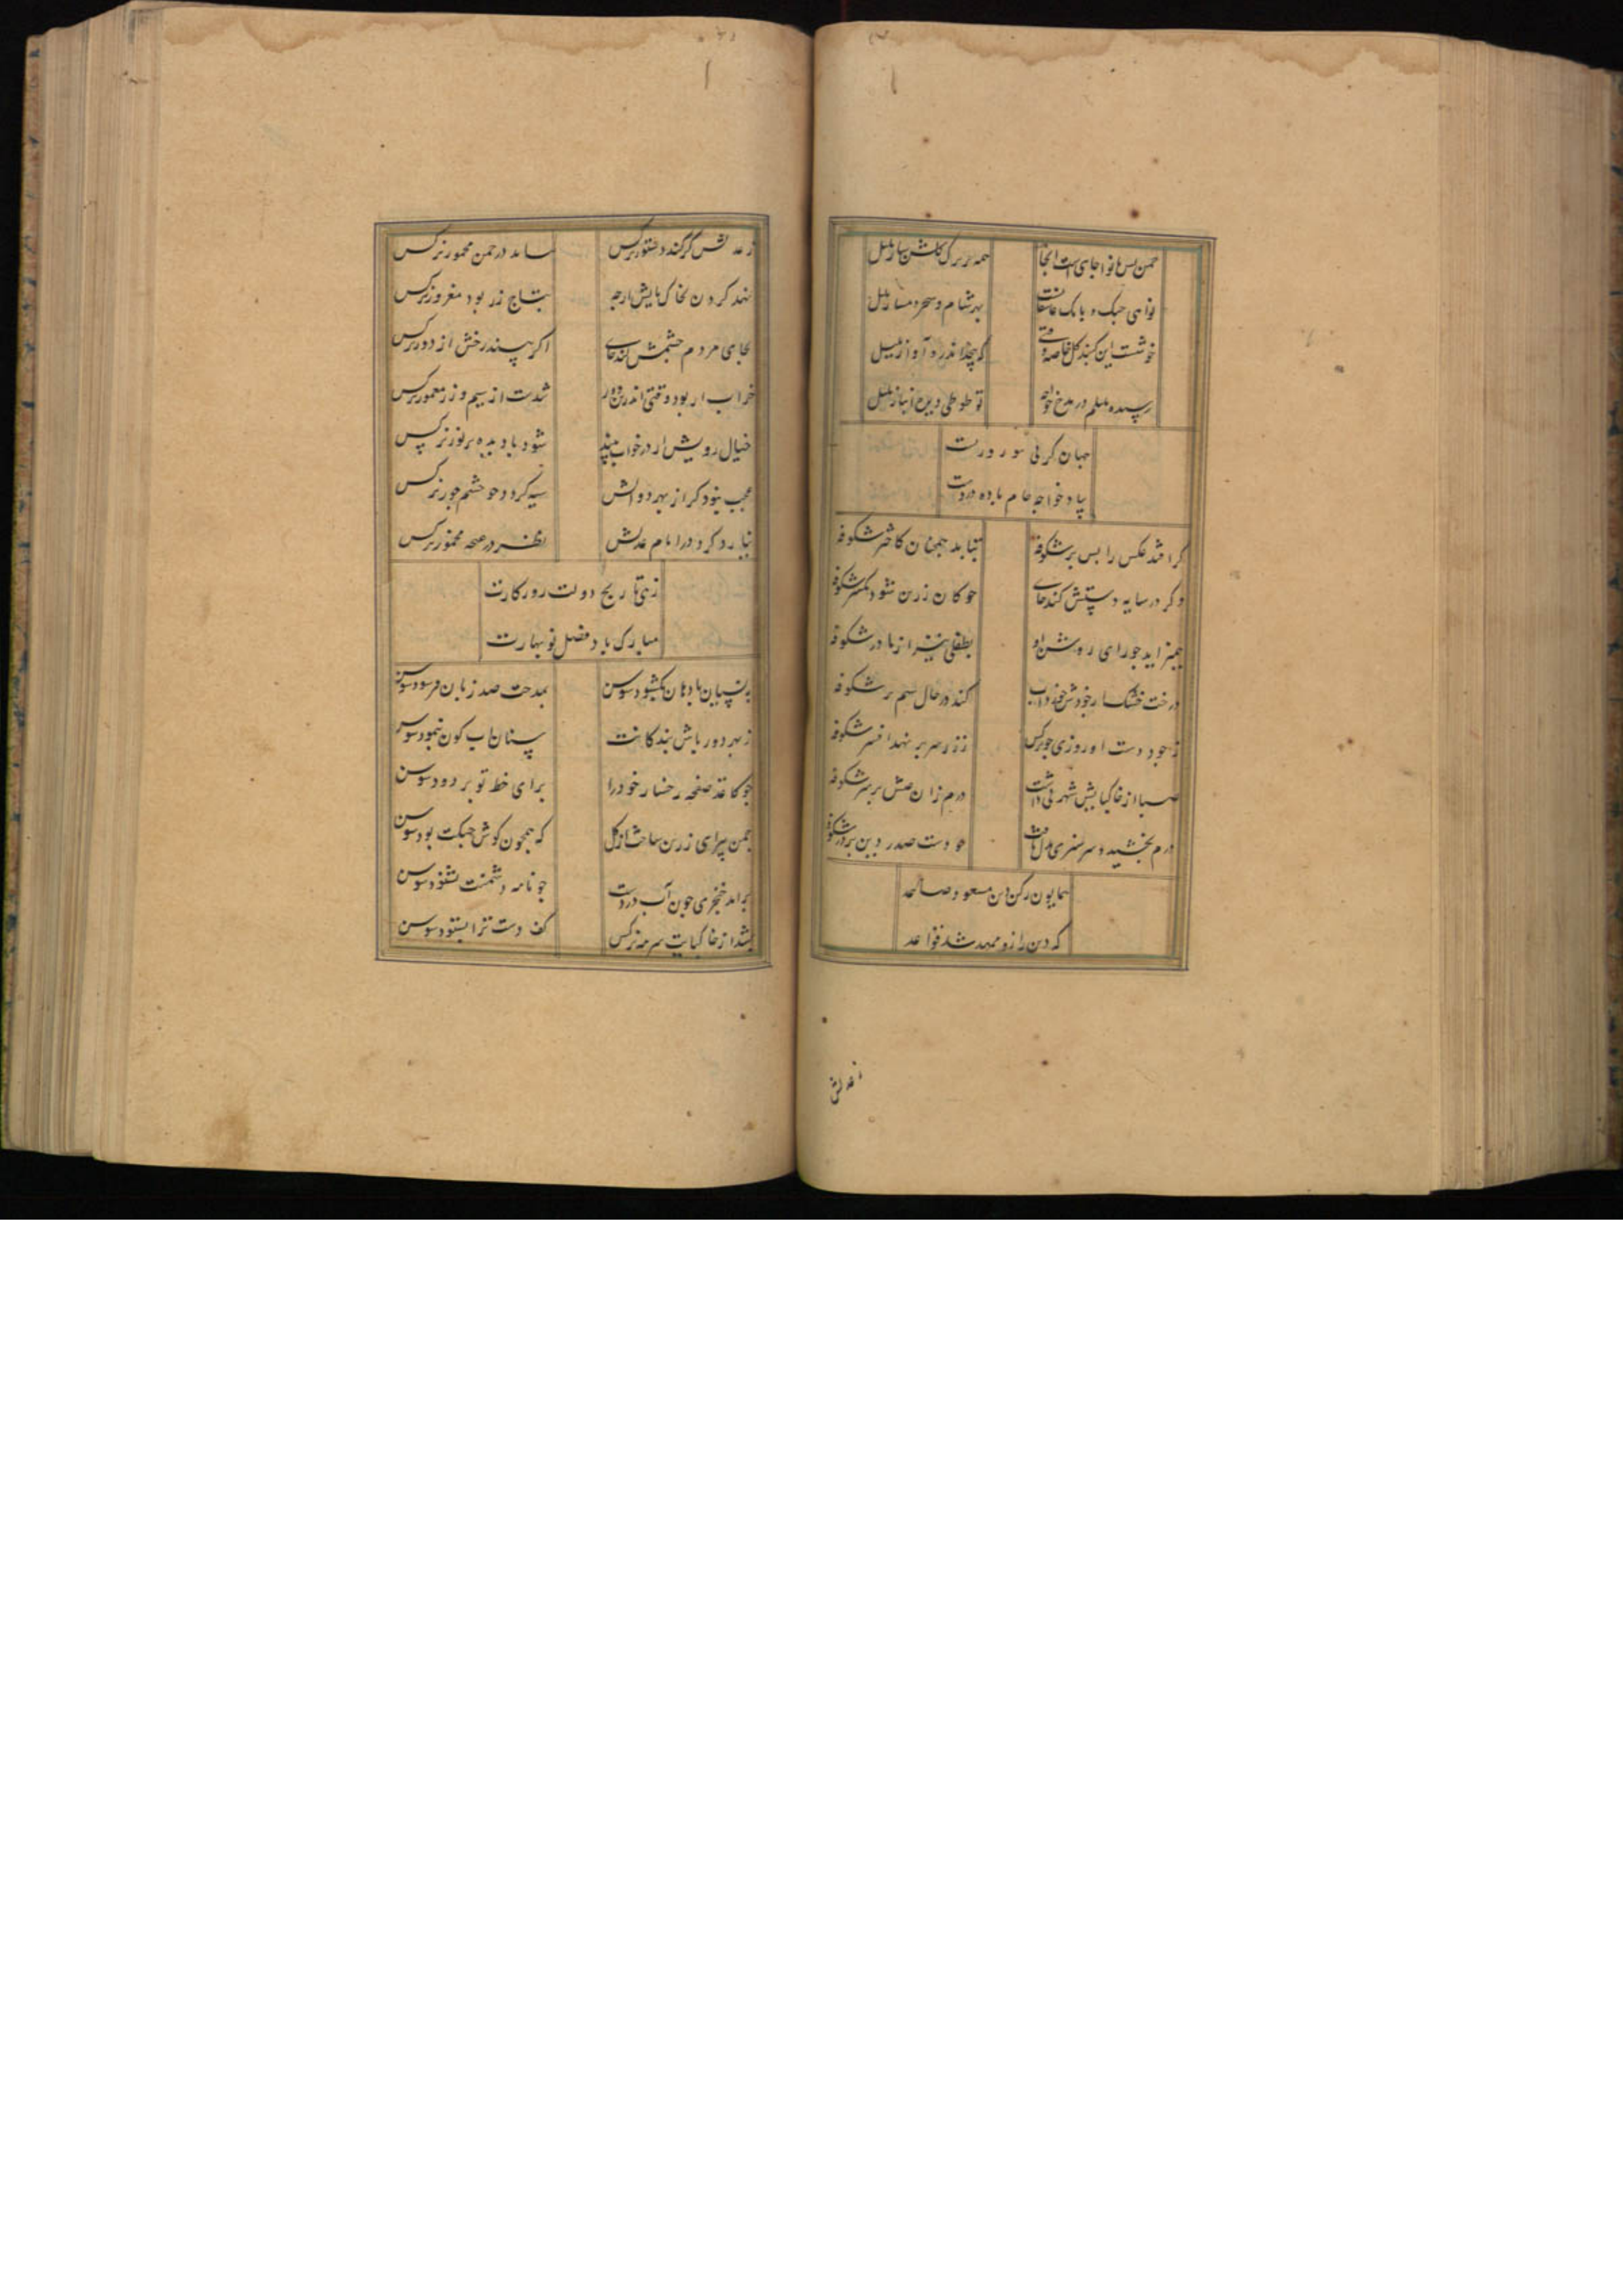 چمن بس با نوا جای است آنجا
همه بر برک کلشن ساز بلبل
نوای چنک و بانک عاشقانست
بهر شام و سحر دمساز بلبل
خوشست این کنبد کل خاصه وقتی
که پیچد اندرو آواز بلبل
رسیده بلبلم در مدح خواجه
تو طوطی وین انباز بلبل
جهان کرنی
بیاد خواجه جام باده در دست
کر افتد عکس رایس بر شکوفه
نتابد همچنان کاختر شکوفه
و کر در سایه دستش کند جای
چو کان زرین شود یکسر شکوفه
چو رای روشن او
بطفلی نیز از مادر شکوفه
درخت خشک ار جودش خورد آب
کند در حال سیم بر شکوفه
ز جود دست او روزی چو نرکس
ز زر بر سر نهد افسر شکوفه
صبا از خاکپایش شهرتی داشت
درم زان بر سر شکوفه
درم بخشید و سرسبزی
چو دست صدر دین پرور شکوفه
همایون رکن دین مسعود صاعد
که دین را زو ممهد شد قواعد
ز عدلش
ز عدلش کر کند دستور نرکس
نیاید در چمن مخمور نرکس
نهد کردن بخاک پایش ار چه
بتاج زر بود مغرور نرکس
بجای مردم چشمش کند جای
اکر بیند رخش از دور نرکس
خراب ار بود وقتی اندرین دور
شدست از سیم و زر معمور نرکس
خیال رویش ار در خواب بیند
شود با دیده پر نور نرکس
عجب نبود کر از بهر دواتش
سیه کردد چو چشم حور نرکس
نیارد کرد در ایام عدلش
نظر در غنچه مخمور نرکس
زهی تاریخ دولت روزکارت
مبارک باد فصل نوبهارت
به نیسان با دهان بکشود سوسن
بمدحت صد زبان فرسود سوسن
ز بهر دورباش بندکانت
سنان آب کون بنمود سوسن
چو کاغذ صفحه رخسار خود را
برای خط تو بزدود سوسن
چمن پیرای زرین ساخت از کل
که همچون کوش چنکت بود سوسن
برآمد خنجری چون آب در دست
چو نام دشمنت بشنود سوسن
بشد از خاکپایت سرمه نرکس
کف دست ترا بستود سوسن